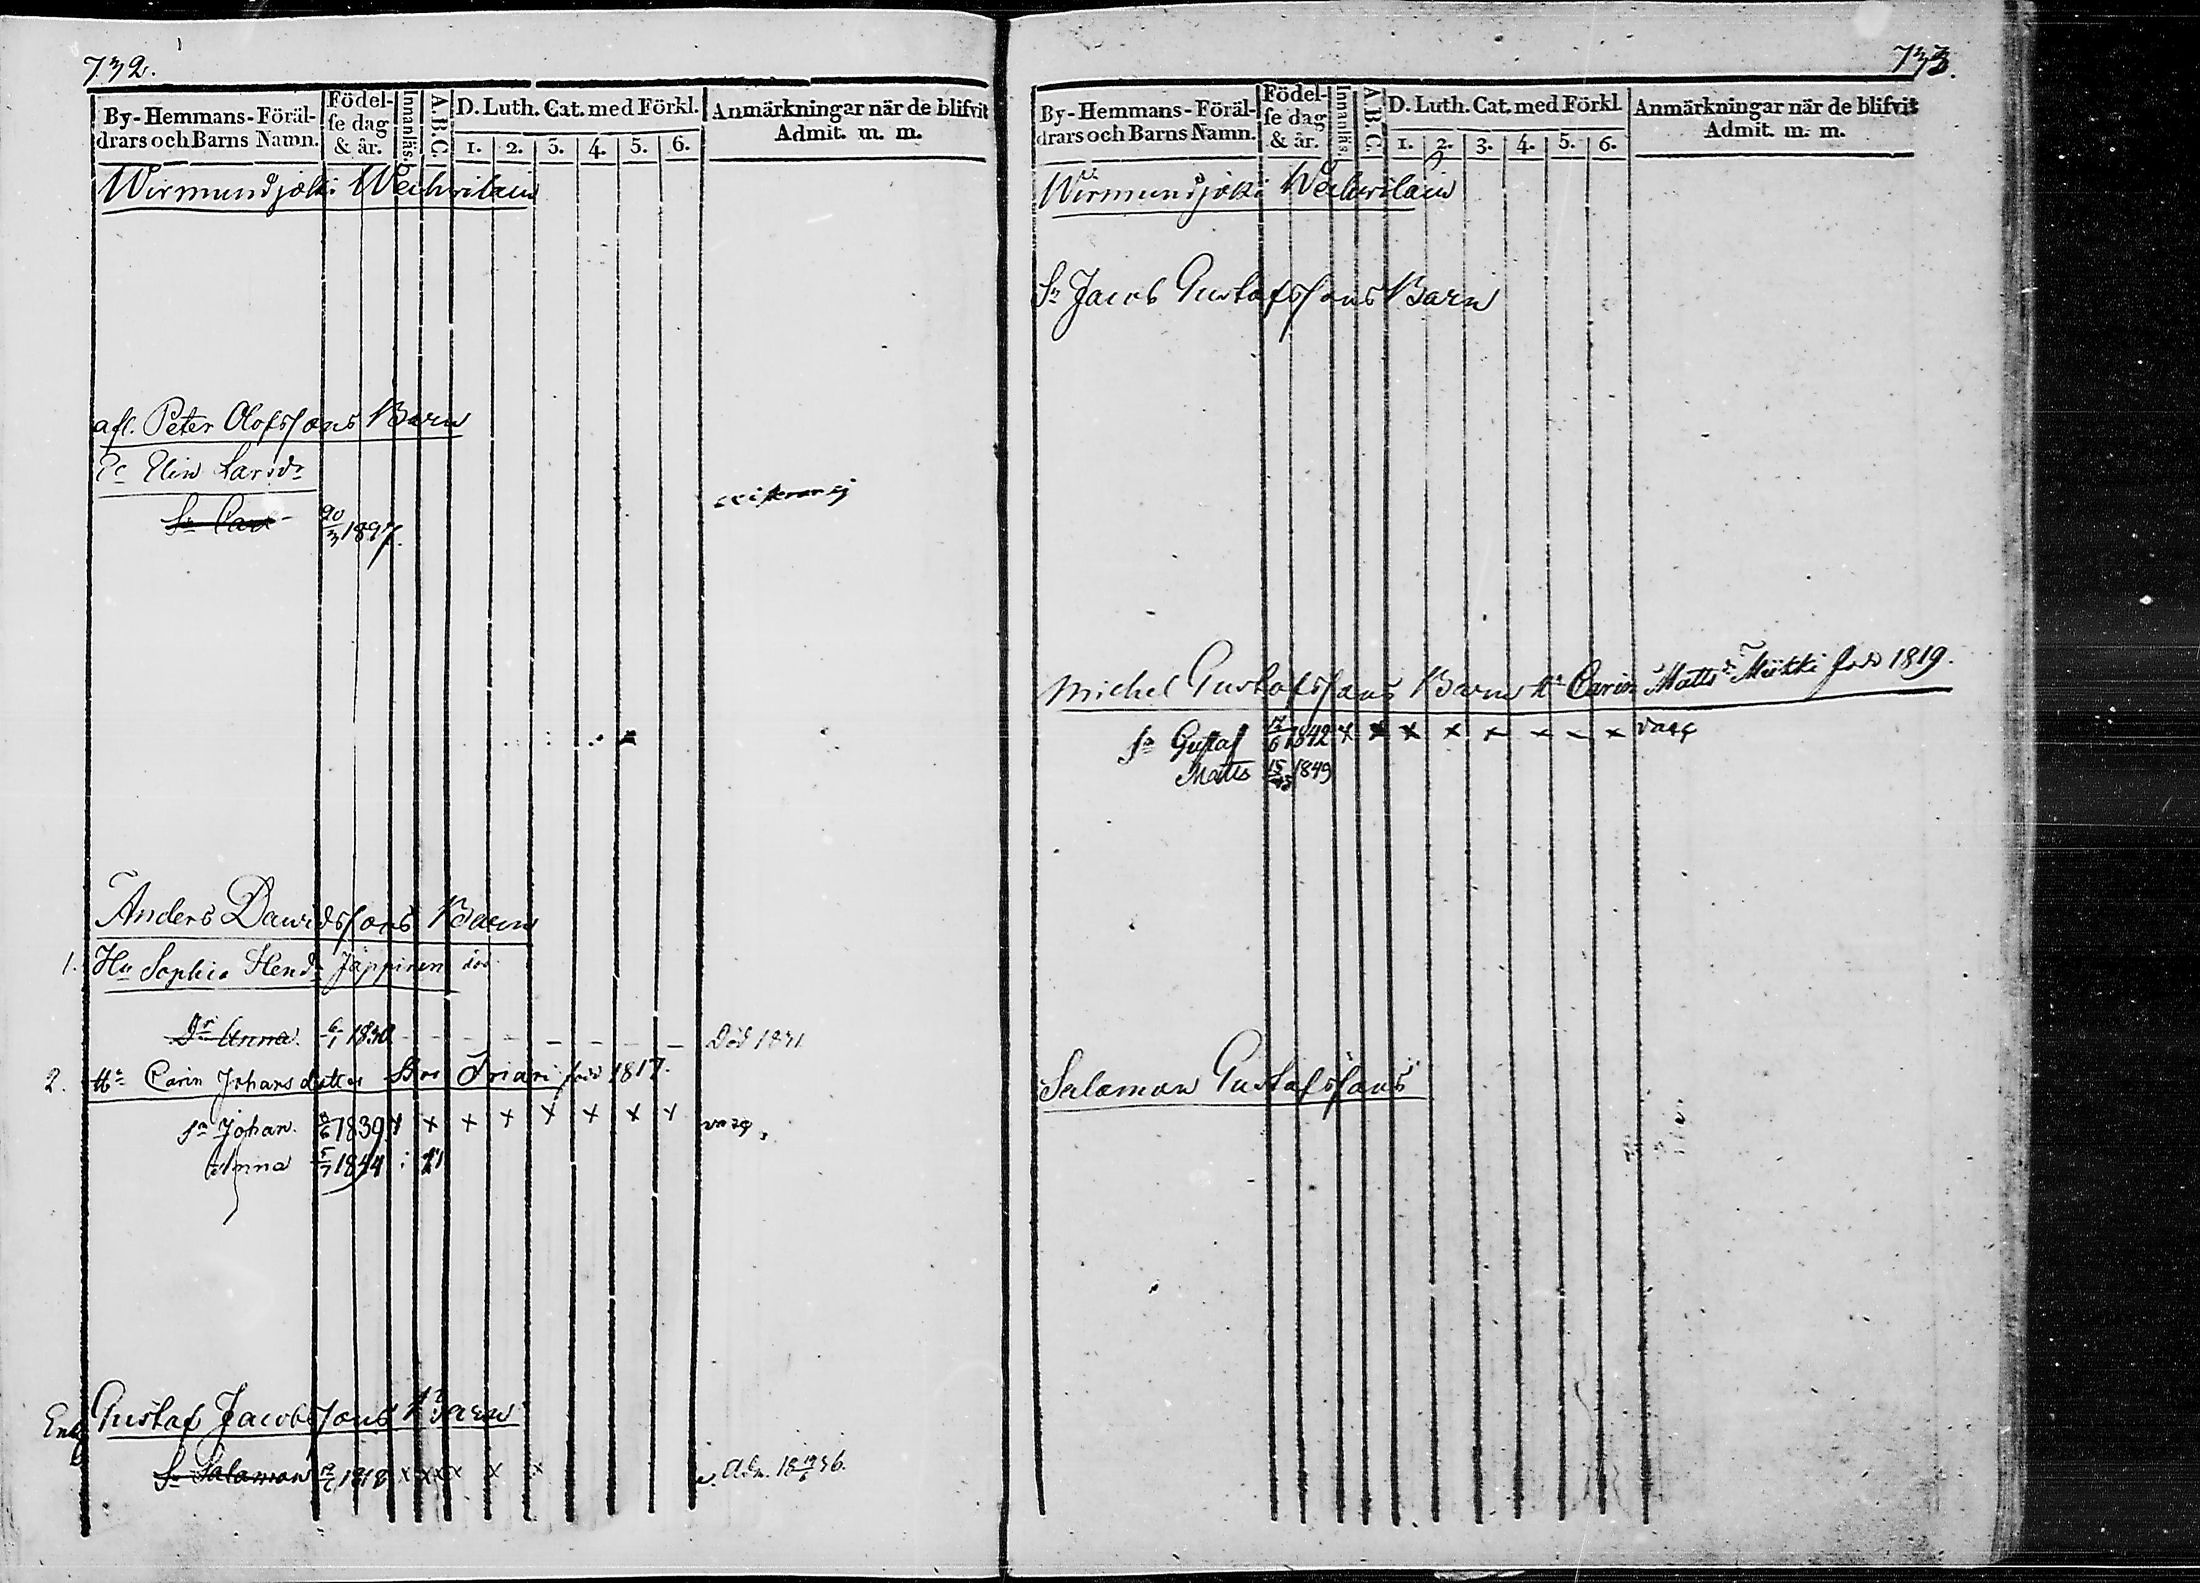 732.
By-Hemmans-Föräl-
drars och Barns Namn.
Födel-
se dag
& år.
Innanläs.
A.B.C.
D. Luth. Cat. med Förkl.
1. 2. 3. 4. 5. 6.
Anmärkningar när de blifvit
Admit. m. m.
Wirmundjoki
afl. Peter Olofssons Barn
Elin Larsdr
Sn Carl 20/3 1827. existerar ej
Anders Dawidssons Barn
1. Hu Sophia Hendr Jäppinen död
Dr Anna 6/1 1830 – – – – – – – Död 1831
2. Hu Carin Johansdotter Iriari född 1817.
Sn Johan. 1839 x x x x x x x x
Anna 1844
Enk Gustaf Jacobssons Barn
Sn Salamon 1818 x x x x x x Adm. 18 36.
733.
By-Hemmans-Föräl-
drars och Barns Namn.
Födel-
se dag
& år.
Innanläs.
A.B.C.
D. Luth. Cat. med Förkl.
1. 2. 3. 4. 5. 6.
Anmärkningar när de blifvit
Admit. m. m.
Wirmundjoki
Sn Jacob Gustafssons Barn
Michel Gustafssons Barn Hu Carin Mattsdr född 1819.
Sn Gustaf 17/6 1842 x x x x x x x x
Matts 1849
Salamon Gustafssons